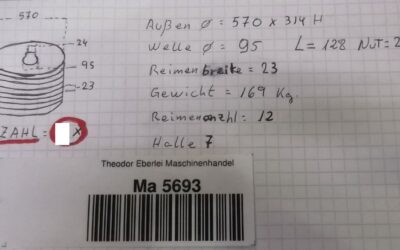 570
24
95
23
ZAHL = X
Außen ø = 570 x 314 H
Welle ø = 95 L = 128 NUT = 2
Reimenbreite = 23
Gewicht = 169 Kg.
Reimenanzhl = 12
Halle 7
Theodor Eberlei Maschinenhandel
Ma 5693